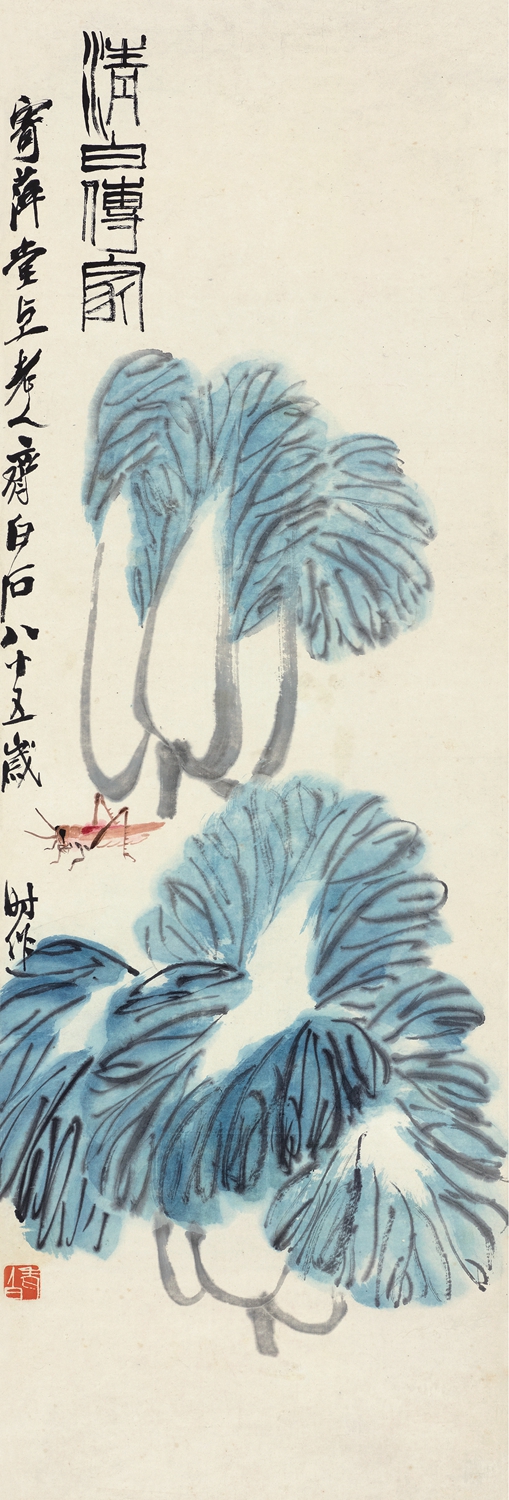 清白傳家
寄萍堂上老人齊白石八十五歲
时作
白石